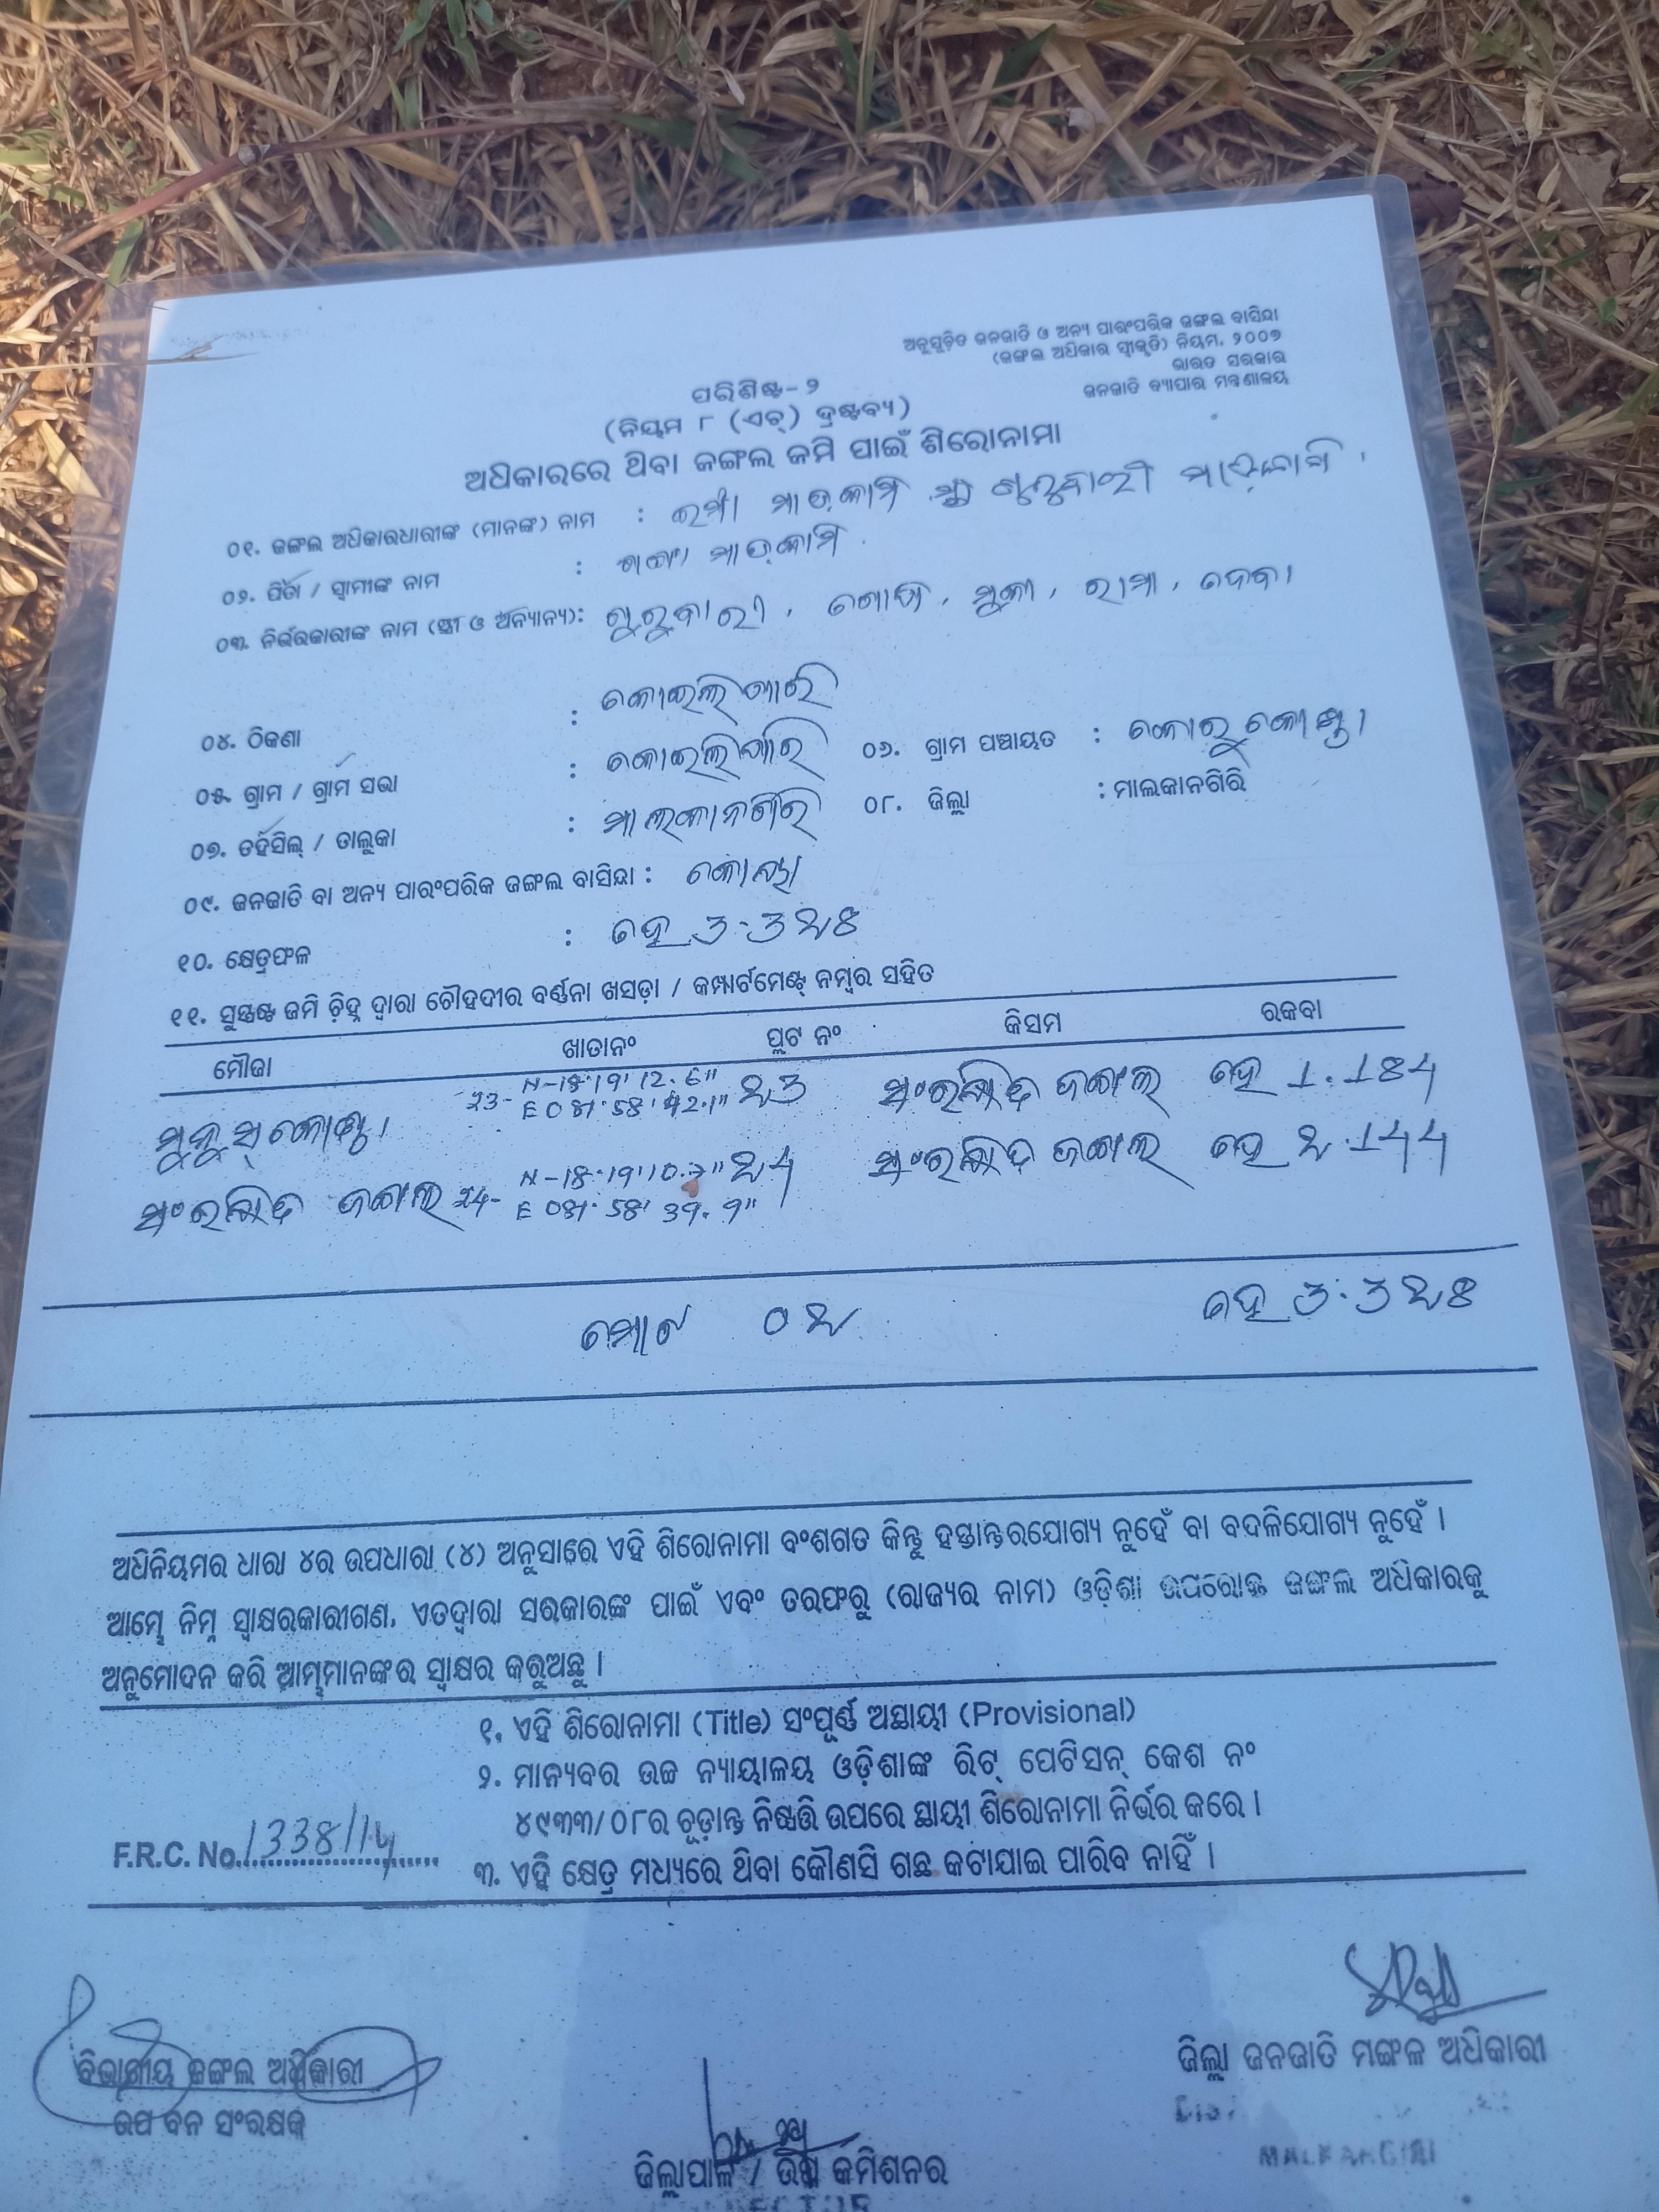 ଅନୁସୂଚିତ ଜନଜାତି ଓ ଅନ୍ୟ ପାରଂପରିକ ଜଙ୍ଗଲ ବାସିନ୍ଦା
(ଜଙ୍ଗଲ ଅଧିକାର ସ୍ୱୀକୃତି) ନିୟମ, ୨୦୦୭
ଭାରତ ସରକାର
ଜନଜାତି ବ୍ୟାପାର ମନ୍ତ୍ରଣାଳୟ
ପରିଶିଷ୍ଟ-୨
(ନିୟମ ୮ (ଏଚ୍) ଦ୍ରଷ୍ଟବ୍ୟ)
ଅଧିକାରରେ ଥିବା ଜଙ୍ଗଲ ଜମି ପାଇଁ ଶିରୋନାମା
୦୧. ଜଙ୍ଗଲ ଅଧିକାରଧାରୀଙ୍କ (ମାନଙ୍କ) ନାମ : ମାଡ଼କାମି ଗୁରୁବାରୀ ମାଡ଼କାମି
୦୨. ପିତା / ସ୍ୱାମୀଙ୍କ ନାମ : ମାଡ଼କାମି
୦୩. ନିର୍ଭରକାରୀଙ୍କ ନାମ (ସ୍ତ୍ରୀ ଓ ଅନ୍ୟାନ୍ୟ): ଗୁରୁବାରୀ, ମୁକା, ରାମା, ଦେବା
୦୪. ଠିକଣା :
୦୫. ଗ୍ରାମ / ଗ୍ରାମ ସଭା : ୦୬. ଗ୍ରାମ ପଞ୍ଚାୟତ : କୋରୁକୋଣ୍ଡା
୦୭. ତହସିଲ୍ / ତାଲୁକା : ମାଲକାନଗିରି ୦୮. ଜିଲ୍ଲା : ମାଲକାନଗିରି
୦୯. ଜନଜାତି ବା ଅନ୍ୟ ପାରଂପରିକ ଜଙ୍ଗଲ ବାସିନ୍ଦା : କୋୟା
୧୦. କ୍ଷେତ୍ରଫଳ : ହେ 3.328
୧୧. ସୁସ୍ପଷ୍ଟ ଜମି ଚିହ୍ନ ଦ୍ୱାରା ଚୌହଦୀର ବର୍ଣ୍ଣନା ଖସଡ଼ା / କମ୍ପାର୍ଟମେଣ୍ଟ ନମ୍ବର ସହିତ
ମୌଜା ଖାତାନଂ ପ୍ଲଟ ନଂ କିସମ ରକବା
23- N-18°19'12.6" 23 ସଂରକ୍ଷିତ ଜଙ୍ଗଲ ହେ 1.184
E 081°58'42.1"
ସଂରକ୍ଷିତ ଜଙ୍ଗଲ 24- 24 ସଂରକ୍ଷିତ ଜଙ୍ଗଲ ହେ 2.144
E 081°58'39.9"
ମୋଟ 02 ହେ 3.328
ଅଧିନିୟମର ଧାରା ୪ର ଉପଧାରା (୪) ଅନୁସାରେ ଏହି ଶିରୋନାମା ବଂଶଗତ କିନ୍ତୁ ହସ୍ତାନ୍ତରଯୋଗ୍ୟ ନୁହେଁ ବା ବଦଳିଯୋଗ୍ୟ ନୁହେଁ ।
ଆମ୍ଭେ ନିମ୍ନ ସ୍ୱାକ୍ଷରକାରୀଗଣ, ଏତଦ୍ୱାରା ସରକାରଙ୍କ ପାଇଁ ଏବଂ ତରଫରୁ (ରାଜ୍ୟର ନାମ) ଓଡ଼ିଶା ଉପରୋକ୍ତ ଜଙ୍ଗଲ ଅଧିକାରକୁ
ଅନୁମୋଦନ କରି ଆମ୍ଭମାନଙ୍କର ସ୍ୱାକ୍ଷର କରୁଅଛୁ ।
୧. ଏହି ଶିରୋନାମା (Title) ସଂପୂର୍ଣ୍ଣ ଅସ୍ଥାୟୀ (Provisional)
୨. ମାନ୍ୟବର ଉଚ୍ଚ ନ୍ୟାୟାଳୟ ଓଡ଼ିଶାଙ୍କ ରିଟ୍ ପେଟିସନ୍ କେଶ ନଂ
୪୯୩୩/୦୮ର ଚୂଡ଼ାନ୍ତ ନିଷ୍ପତ୍ତି ଉପରେ ସ୍ଥାୟୀ ଶିରୋନାମା ନିର୍ଭର କରେ ।
F.R.C. No. 1338/14
୩. ଏହି କ୍ଷେତ୍ର ମଧ୍ୟରେ ଥିବା କୌଣସି ଗଛ କଟାଯାଇ ପାରିବ ନାହିଁ ।
ବିଭାଗୀୟ ଜଙ୍ଗଲ ଅଧିକାରୀ
ଉପ ବନ ସଂରକ୍ଷକ
ଜିଲ୍ଲା ଜନଜାତି ମଙ୍ଗଳ ଅଧିକାରୀ
MALKANGIRI
ଜିଲ୍ଲାପାଳ / ଉପ କମିଶନର